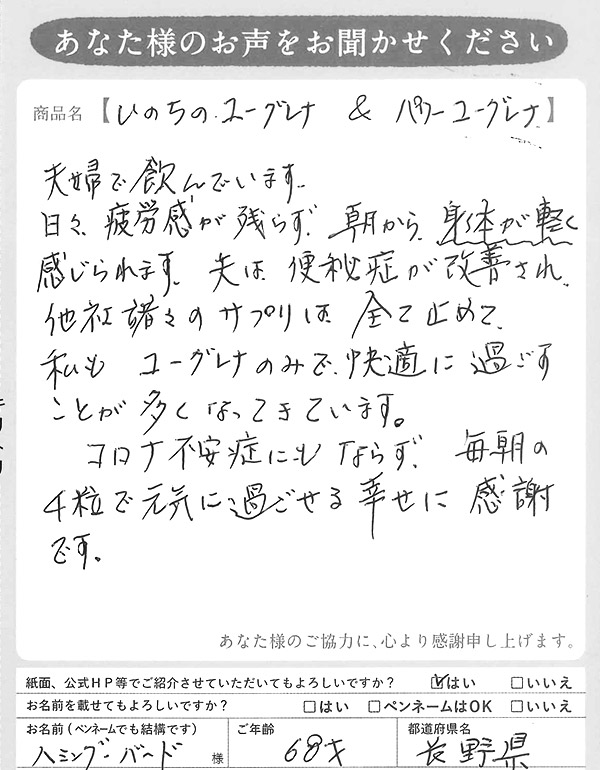 あなた様のお声をお聞かせください
商品名【いのちのユーグレナ & パワーユーグレナ】
夫婦で飲んでいます。
日々、疲労感が残らず、朝から、身体が軽く
感じられます。夫は便秘症が改善され、
他社諸々のサプリは全て止めて、
私もユーグレナのみで、快適に過ごす
ことが多くなってきています。
コロナ不安症にもならず、毎朝の
4粒で元気に過ごせる幸せに感謝
です。
あなた様のご協力に、心より感謝申し上げます。
紙面、公式HP等でご紹介させていただいてもよろしいですか? ☑はい □いいえ
お名前を載せてもよろしいですか? □はい □ペンネームはOK □いいえ
お名前(ペンネームでも結構です) ご年齢 都道府県名
ハミングバード 様 68才 長野県